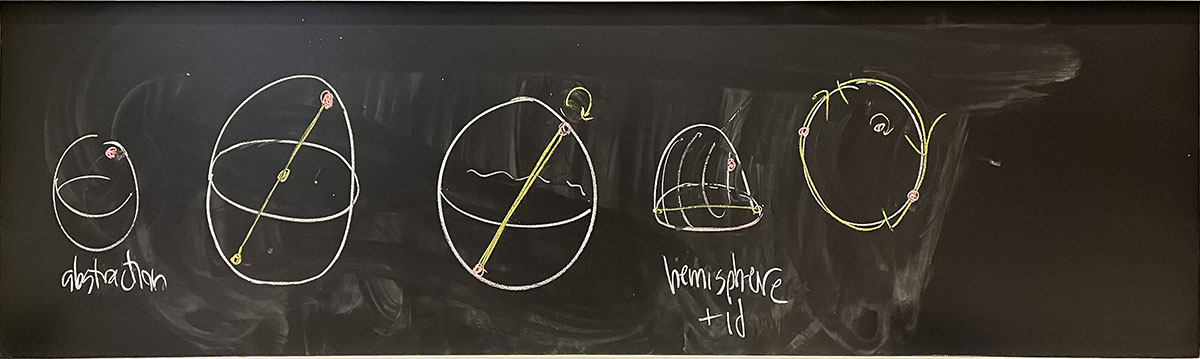 abstraction
hemisphere
+ id